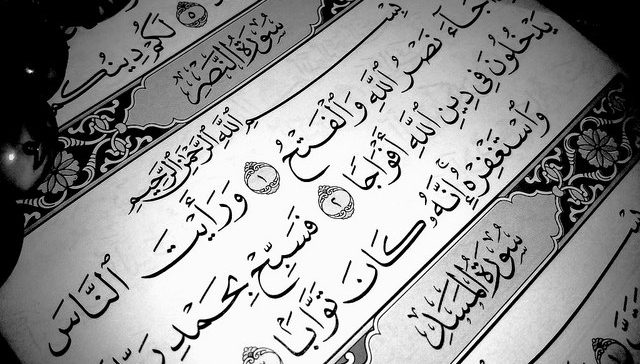 ٥ لَكُمْ دِينُكُ
سُورَةُ النَّصْرِ
بِسْمِ ٱللَّهِ ٱلرَّحْمَٰنِ ٱلرَّحِيمِ
جَآءَ نَصْرُ ٱللَّهِ وَٱلْفَتْحُ ١ وَرَأَيْتَ ٱلنَّاسَ
يَدْخُلُونَ فِى دِينِ ٱللَّهِ أَفْوَاجًا ٢ فَسَبِّحْ بِحَمْدِ
وَٱسْتَغْفِرْهُ إِنَّهُۥ كَانَ تَوَّابًۢا
سُورَةُ المَسَدِ